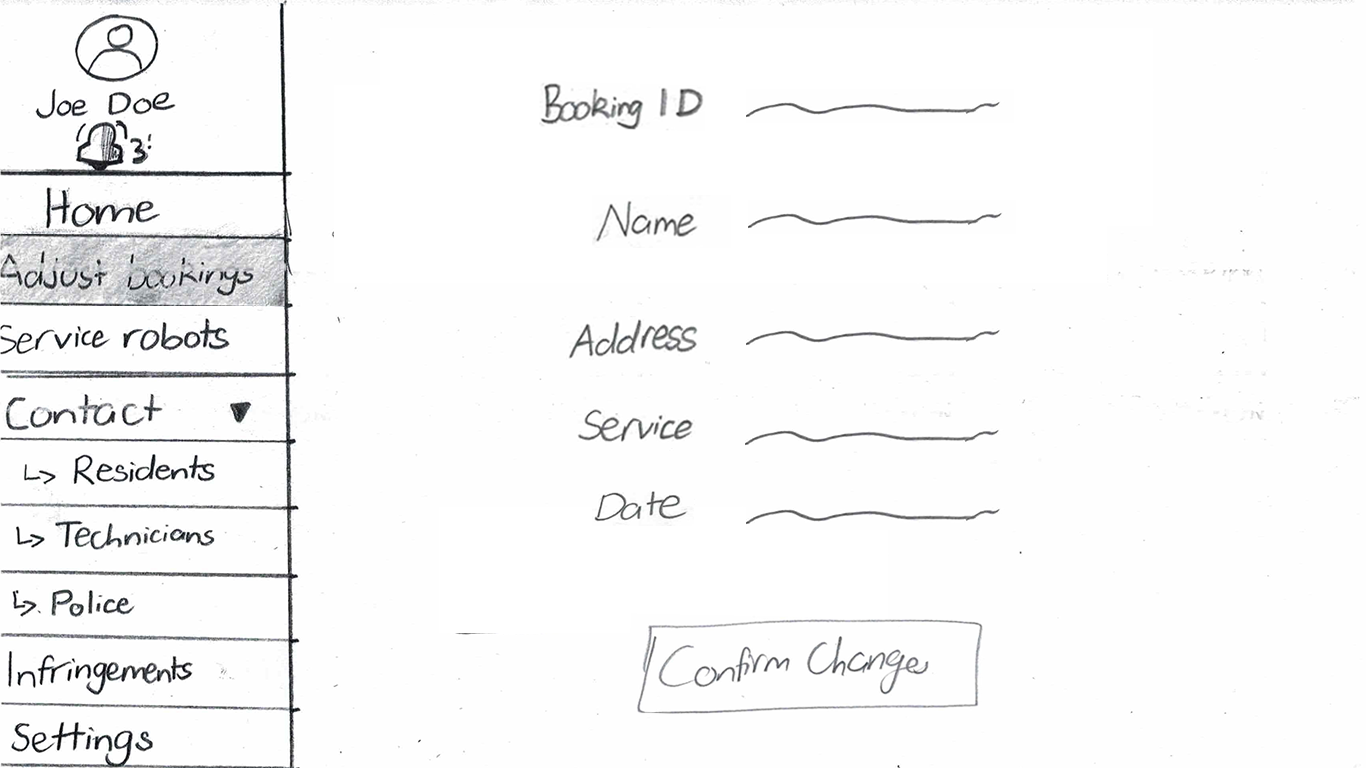 Joe Doe
3
Home
Adjust bookings
Service robots
Contact
Residents
Technicians
Police
Infringements
Settings
Booking ID
Name
Address
Service
Date
Confirm Changes